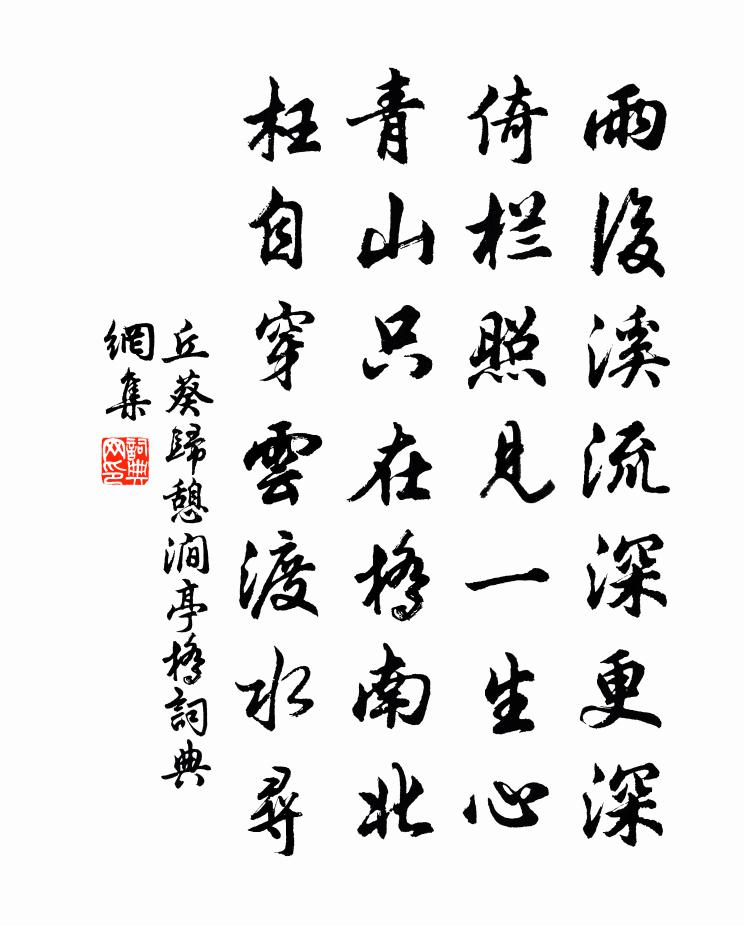 雨後溪流深更深
倚栏照見一生心
青山只在橋南北
枉自穿雲渡水尋
丘葵歸憩澗亭橋詞典
網集
詞典
网印